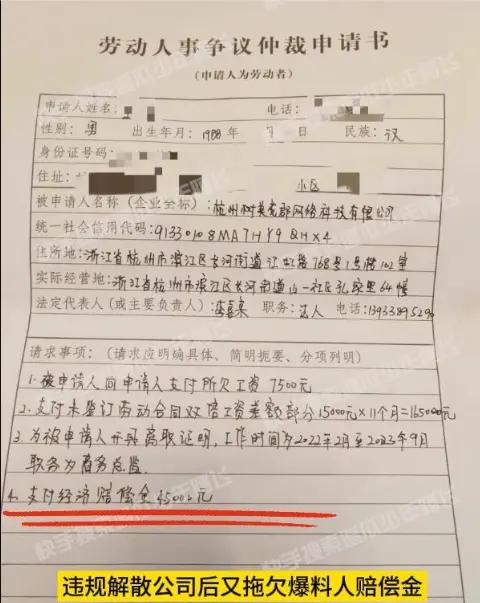 劳动人事争议仲裁申请书
(申请人为劳动者)
申请人姓名: 电话:
性别: 男 出生年月: 1988 年 月 日 民族: 汉
身份证号码:
住址: 小区
被申请人名称(企业全称): 杭州树英克郡网络科技有限公司
统一社会信用代码: 91330108MA7HY9QHX4
住所地: 浙江省杭州市滨江区长河街道江虹路768号1号楼102室
实际经营地: 浙江省杭州市滨江区长河街道山一社区孔段里64幢
法定代表人(或主要负责人): 嘉 职务: 法人 电话:
请求事项: (请求应明确具体、简明扼要、分项列明)
1. 被申请人向申请人支付所欠工资 7500元
2. 支付未签订劳动合同双倍工资差额部分15000元×11个月=165000元
3. 为被申请人开具离职证明, 工作时间为2022年2月至2023年9月
职务为商务总监.
4. 支付经济赔偿金45000元
违规解散公司后又拖欠爆料人赔偿金